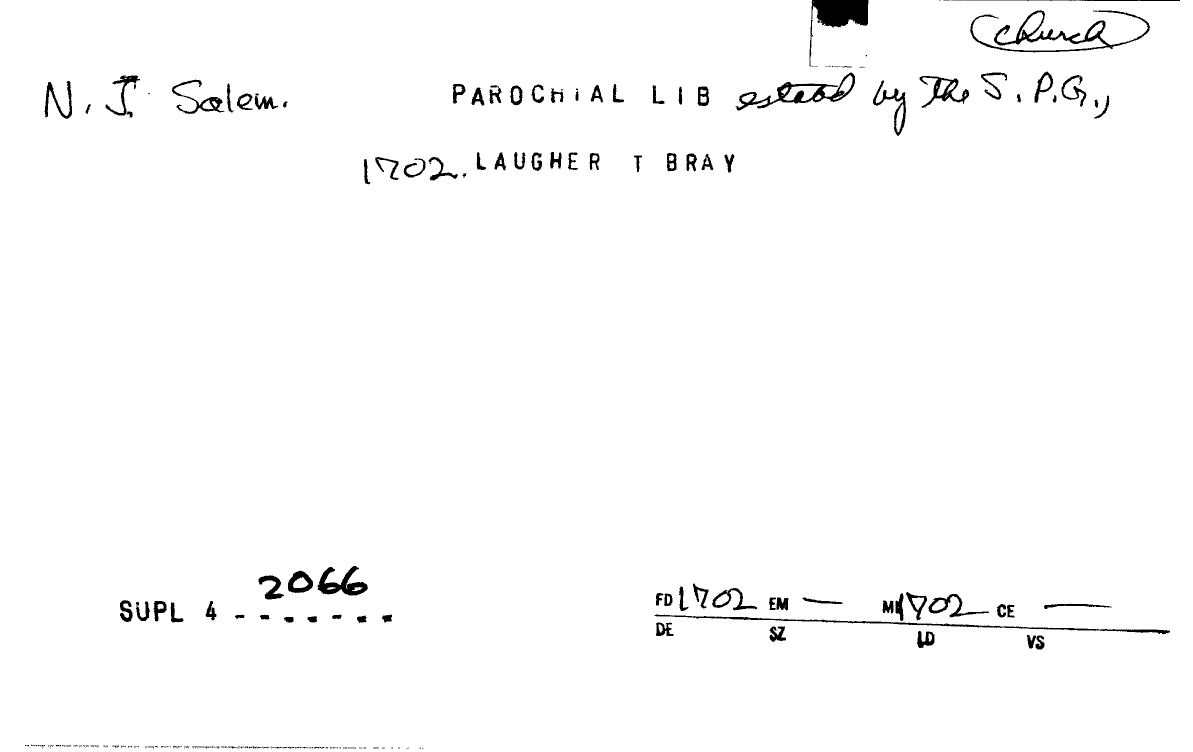 church
N. J. Salem. PAROCHIAL LIB estabd by the S. P. G.,
1702. LAUGHER T BRAY
2066
SUPL 4 - - - - - - -
FD 1702 EM — MI 1702 CE —
DE SZ LD VS